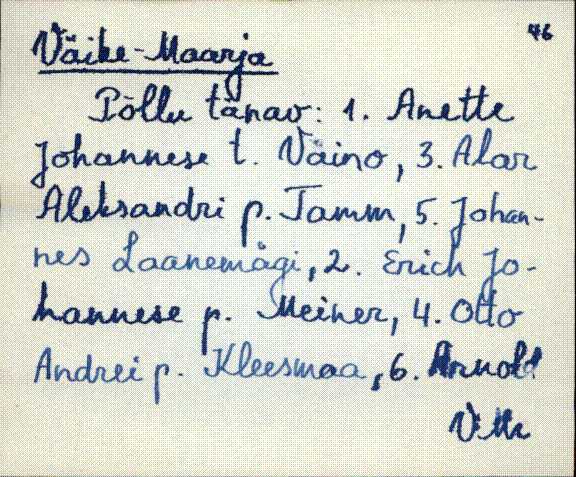 46
Väike-Maarja
Põllu tänav: 1. Anette
Johannese t. Väino, 3. Alar
Aleksandri p. Tamm, 5. Johan-
nes Laanemägi, 2. Erich Jo-
hannese p. Meiner, 4. Otto
Andrei p. Kleesmaa, 6. Arnold